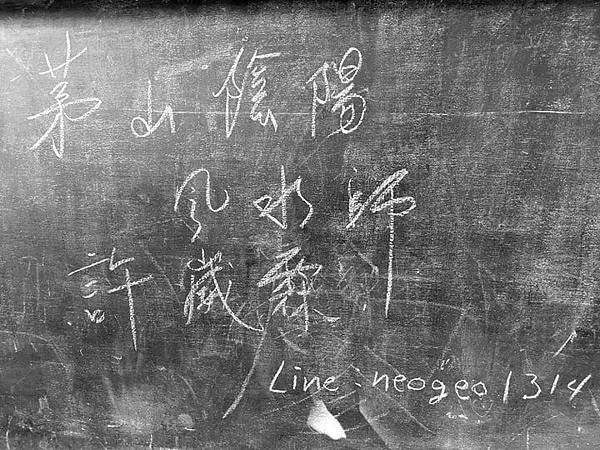 茅山陰陽
风水師
許崴
Line:neogeo1314